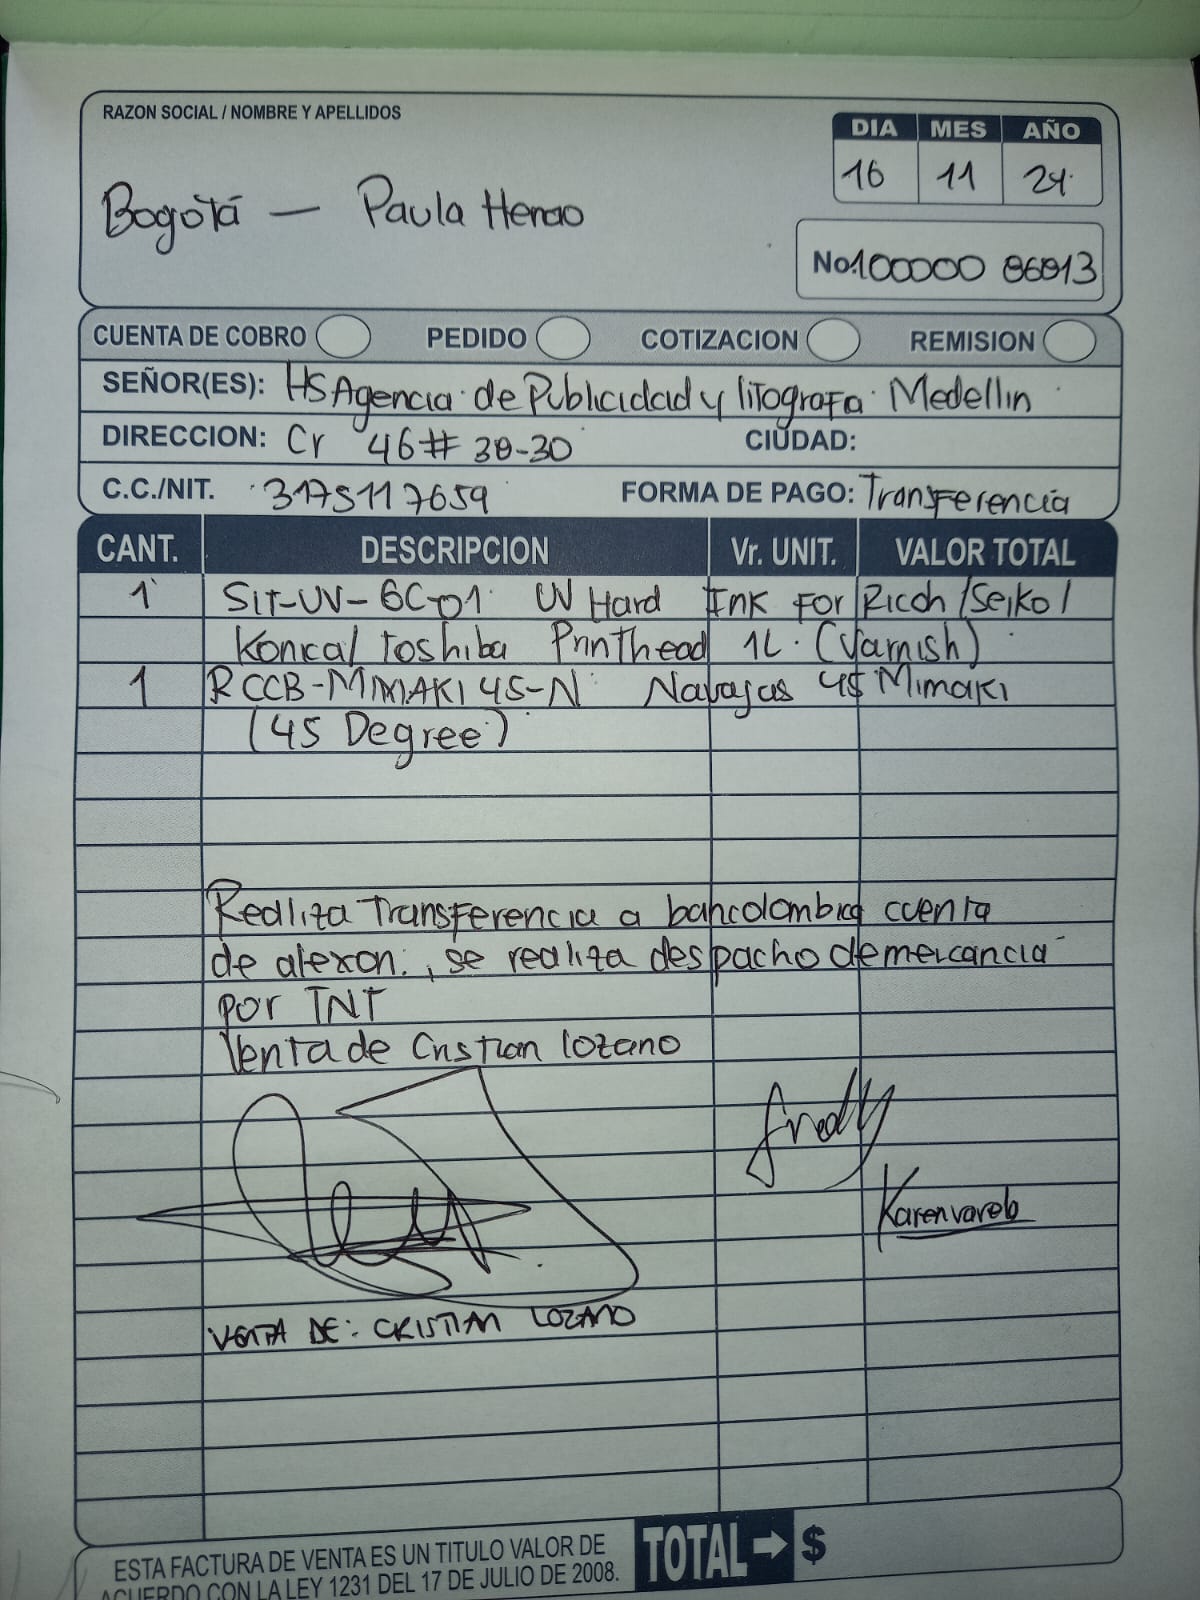 RAZON SOCIAL / NOMBRE Y APELLIDOS
DIA MES AÑO
16 11 24
Bogotá — Paula Henao
No. 100000 86813
CUENTA DE COBRO PEDIDO COTIZACION REMISION
SEÑOR(ES): HS Agencia de Publicidad y litografa Medellin
DIRECCION: Cr 46 # 38-30 CIUDAD:
C.C./NIT. 3175117659 FORMA DE PAGO: Transferencia
CANT. DESCRIPCION Vr. UNIT. VALOR TOTAL
1 SIT-UV-6C-01 UV Hard Ink For Ricoh/Seiko/
Konica/toshiba Printhead 1L. (Varnish)
1 RCCB-MIMAKI45-N Navajas 45 Mimaki
(45 Degree)
Realiza Transferencia a bancolombia cuenta
de alexon., se realiza despacho de mercancia
por TNT
Venta de Cristian lozano
Fredy
Karen varela
VENTA DE: CRISTIAN LOZANO
ESTA FACTURA DE VENTA ES UN TITULO VALOR DE
ACUERDO CON LA LEY 1231 DEL 17 DE JULIO DE 2008.
TOTAL → $